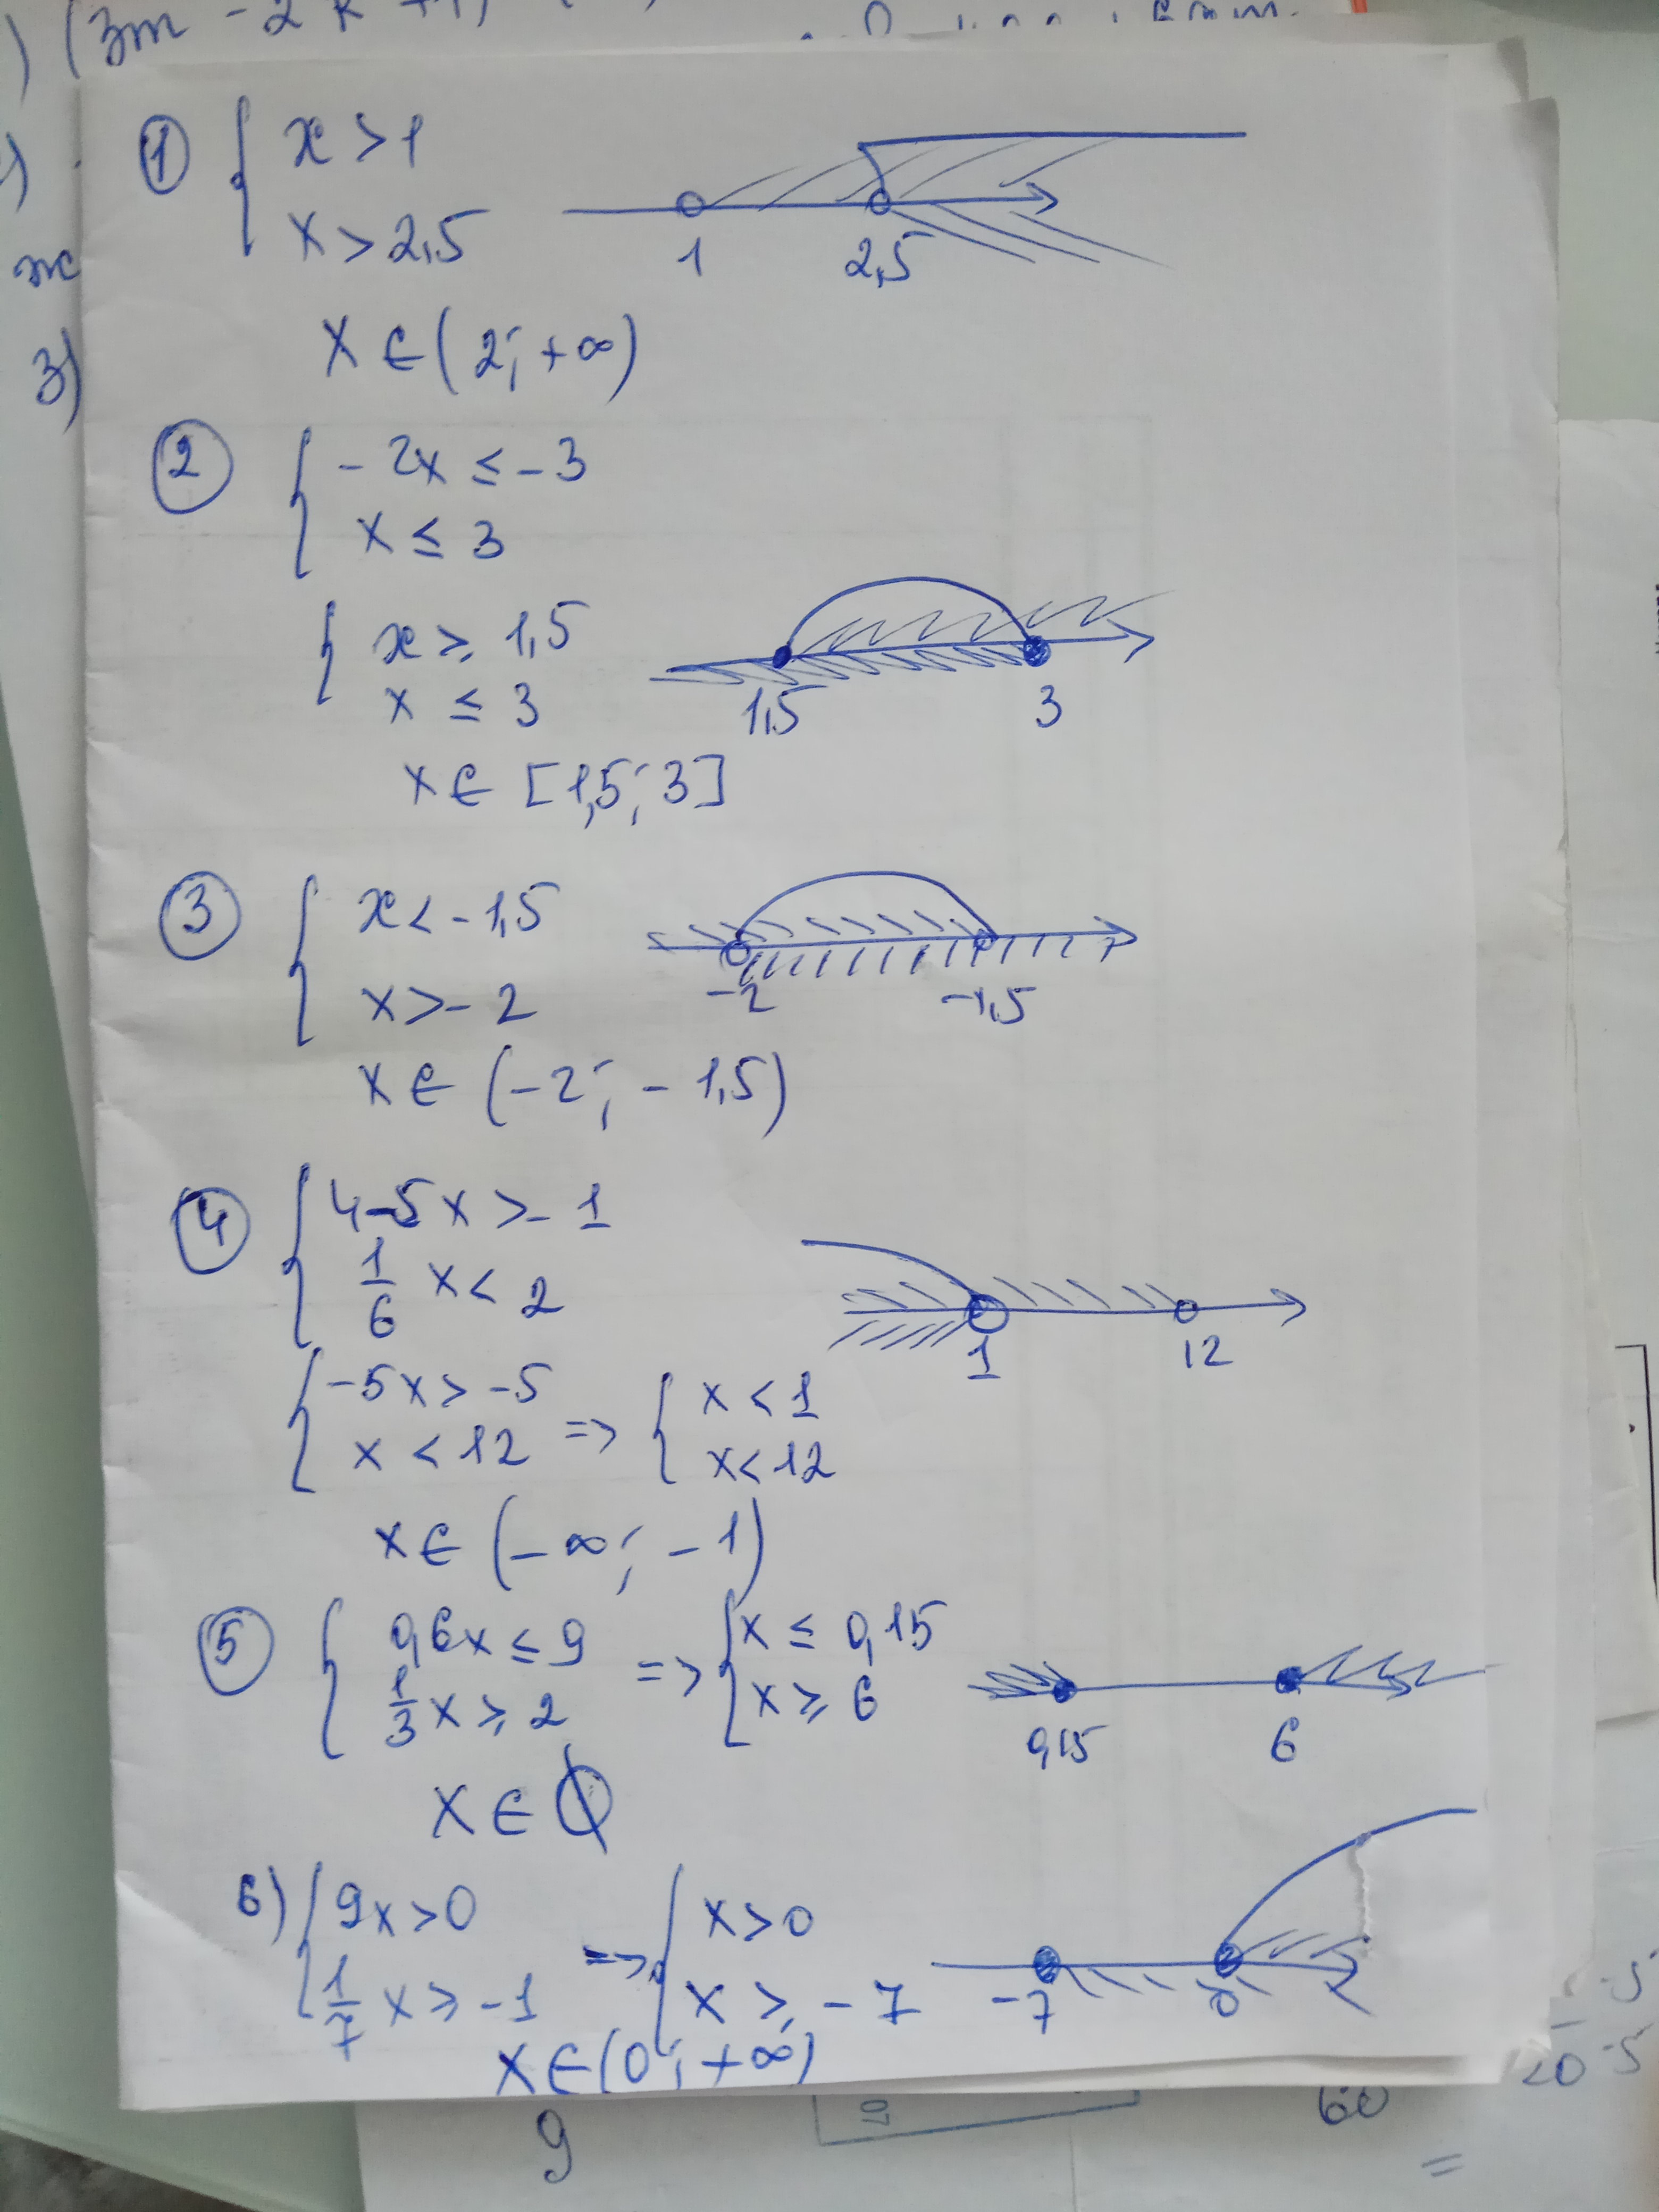 ) (3m - 2
3)
① { x > 1
x > 2,5
1 2,5
x ∈ (2; +∞)
② { - 2x ≤ - 3
x ≤ 3
{ x ≥ 1,5
x ≤ 3
1,5 3
x ∈ [1,5; 3]
③ { x < - 1,5
x > - 2
-2 -1,5
x ∈ (-2; - 1,5)
④ { 4-5x > - 1
1/6 x < 2
1 12
{ -5x > -5
x < 12 => { x < 1
x < 12
x ∈ (-∞; -1)
⑤ { 0,6x ≤ 9
1/3 x ≥ 2 => { x ≤ 0,15
x ≥ 6
0,15 6
x ∈ Ø
6) { 9x > 0
1/7 x ≥ -1 => { x > 0
x ≥ - 7
-7 0
x ∈ (0; +∞)
9
60
=